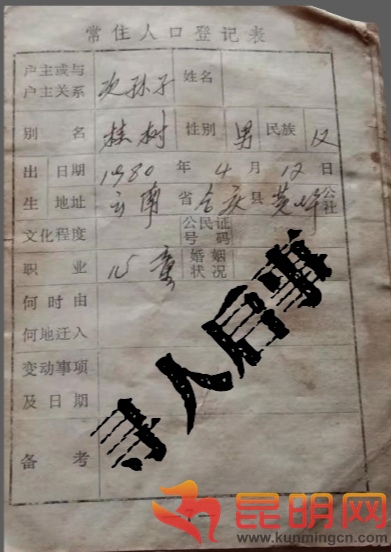 常住人口登记表
户主或与 次孙子 姓名
户主关系
别名 桂树 性别 男 民族 汉
出 日期 1980 年 4 月 12 日
生 地址 云南 省 合庆 县 黄坪 公社
文化程度 公民证号码
职业 儿童 婚姻状况
何时由
何地迁入
变动事项
及日期
备考
寻人启事
昆明网
www.kunmingcn.com